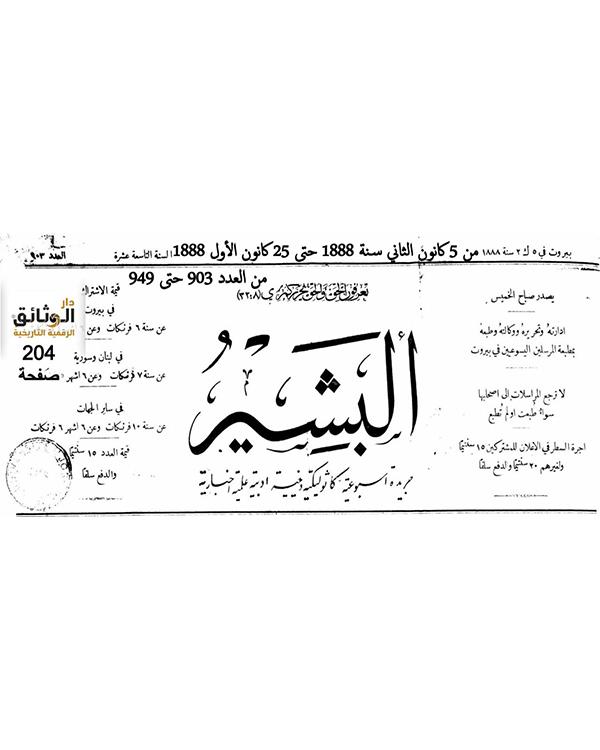 بيروت في ٥ ك ٢ سنة ١٨٨٨ من 5 كانون الثاني سنة 1888 حتى 25 كانون الأول 1888 السنة التاسعة عشرة العدد ٩٠٣
من العدد 903 حتى 949
تعرفون الحق والحق يحرركم (يو ٨: ٣٢)
البشير
جريدة اسبوعية كاثوليكية دينية ادبية علمية اخبارية
يصدر صباح الخميس
ادارته وتحريره ووكالته وطبعه
بمطبعة المرسلين اليسوعيين في بيروت
لا ترجع المراسلات الى اصحابها
سواء طبعت او لم تطبع
اجرة السطر في الاعلان للمشتركين ١٥ سنتيما
ولغيرهم ٢٠ سنتيما والدفع سلفا
قيمة الاشتراك
في بيروت
عن سنة ٦ فرنكات وعن
في لبنان وسورية
عن سنة ٧ فرنكات وعن ٦ اشهر
في ساير الجهات
عن سنة ١٠ فرنكات وعن ٦ اشهر ٦ فرنكات
قيمة العدد ١٥ سنتيما
والدفع سلفا
دار
الوثائق
الرقمية التاريخية
204
صفحة